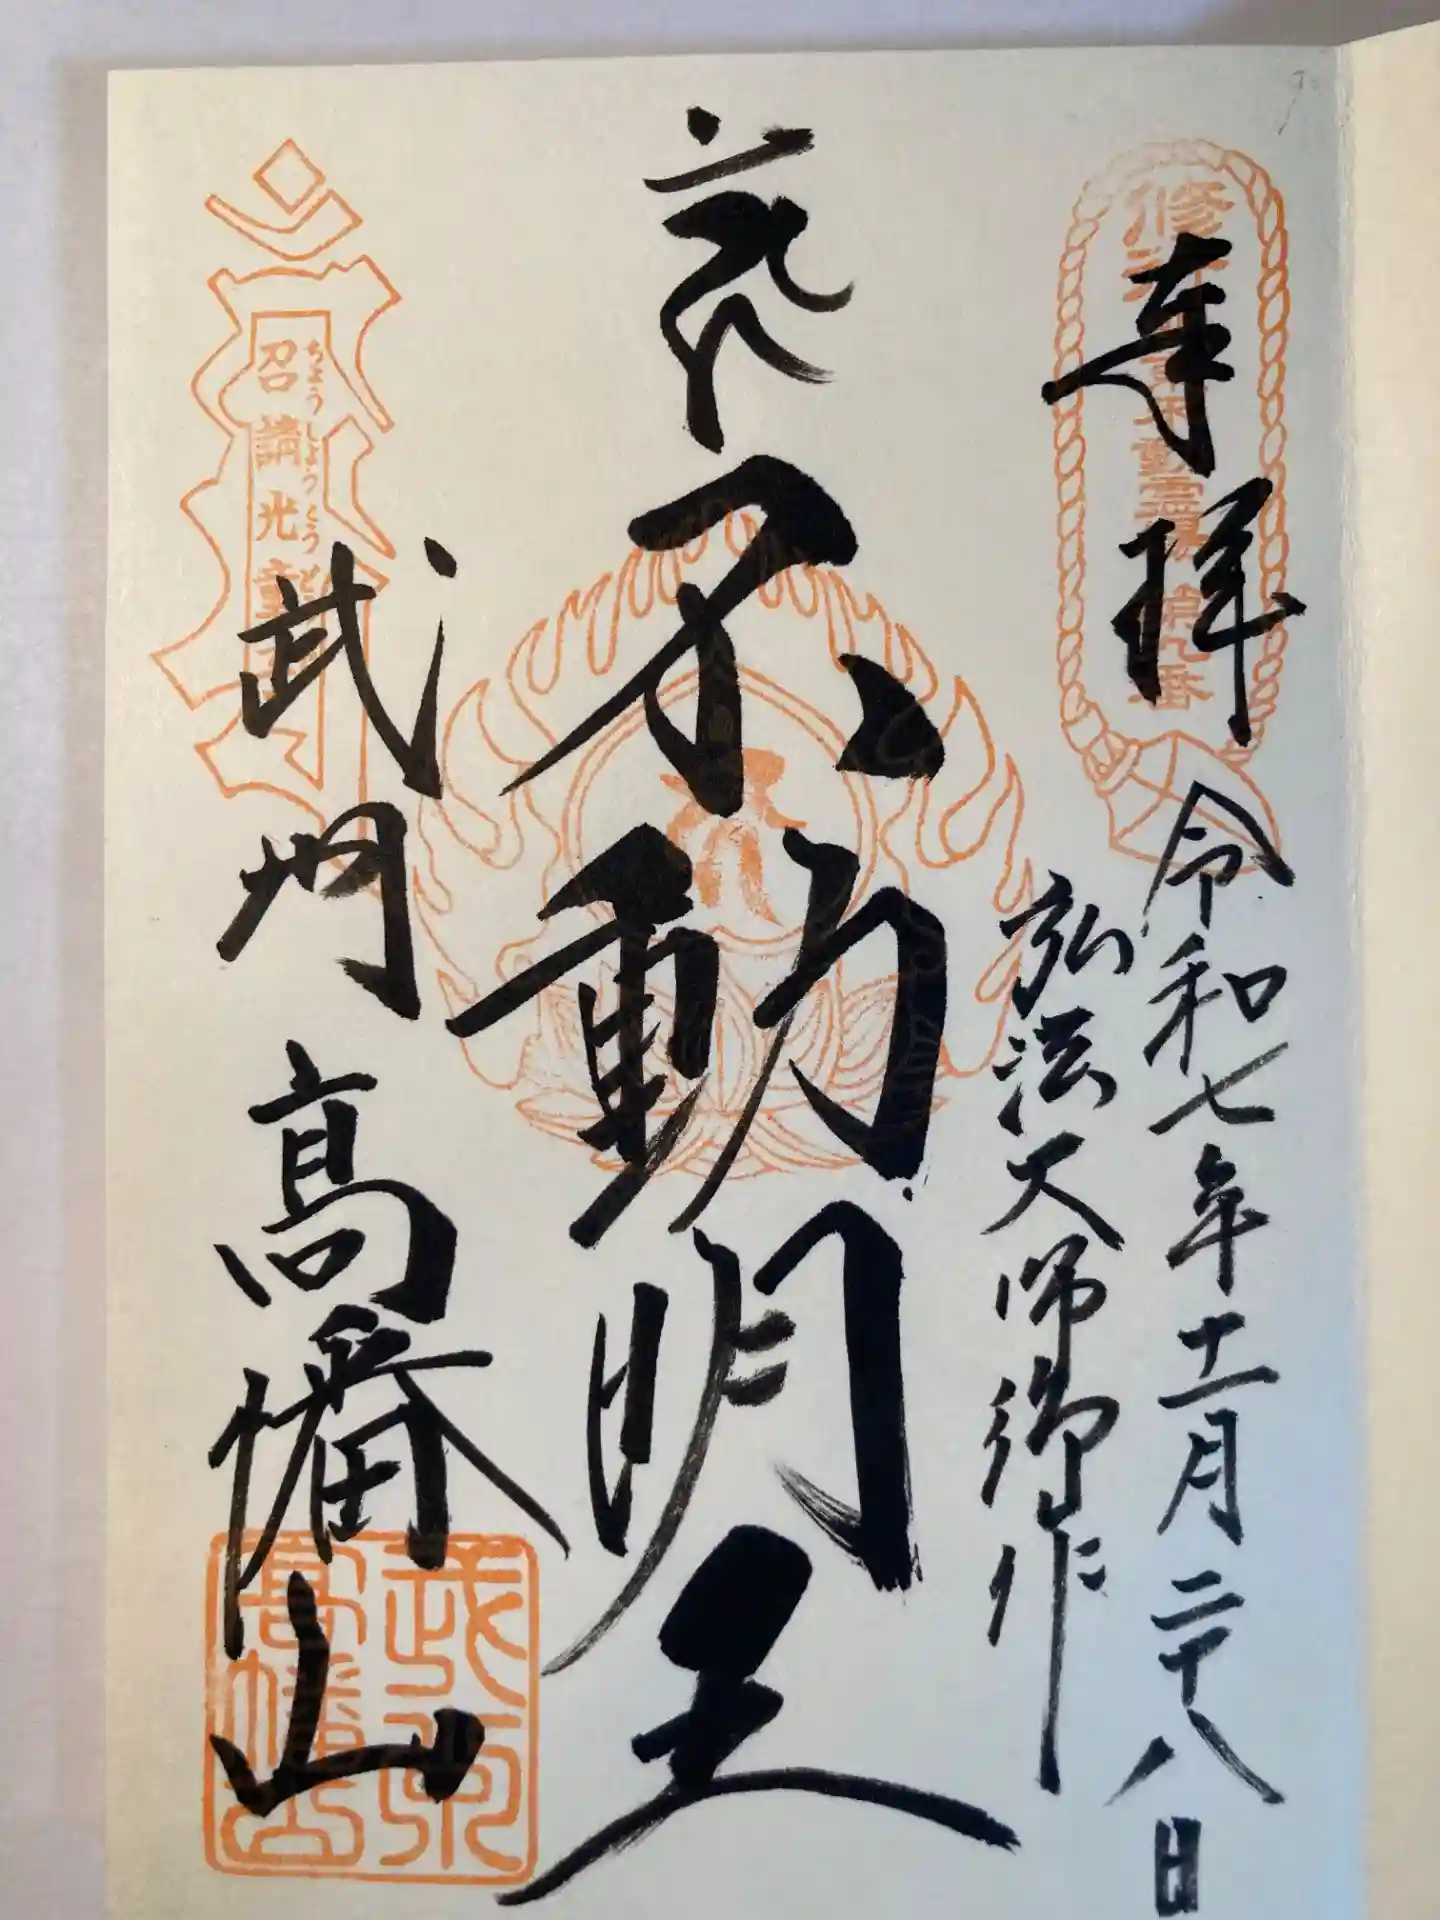 奉拝
令和七年十一月二十八日
弘法大師御作
不動明王
武州
高幡山
召請光童子
ちょうしょうこうどうじ
武州高幡山